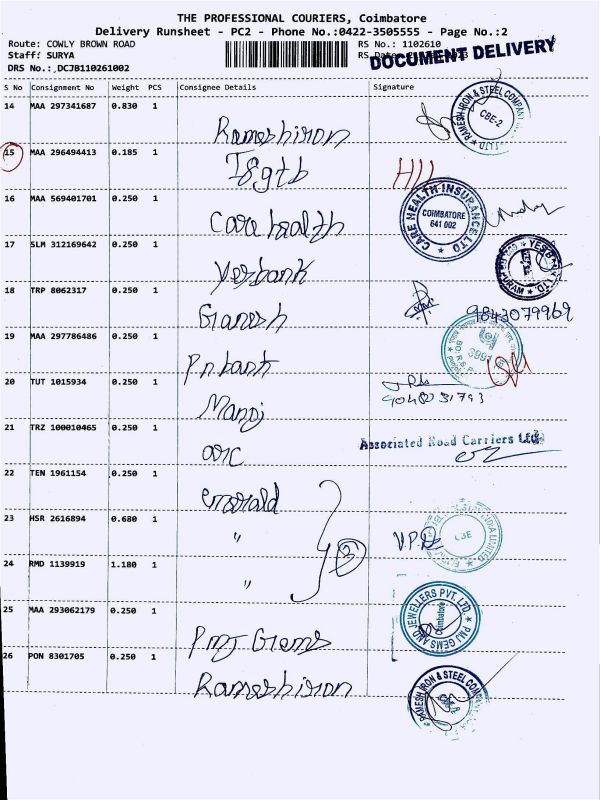 THE PROFESSIONAL COURIERS, Coimbatore
Delivery Runsheet - PC2 - Phone No.:0422-3505555 - Page No.:2
Route: COWLY BROWN ROAD RS No.: 1102610
Staff: SURYA RS Date:
DOCUMENT DELIVERY
DRS No.: DCJB110261002
S No Consignment No Weight PCS Consignee Details Signature
14 MAA 297341687 0.830 1 Rameshiron RAMESH IRON & STEEL COMPANY CBE-2
15 MAA 296494413 0.185 1
16 MAA 569401701 0.250 1 Care health CARE HEALTH INSURANCE LTD COIMBATORE 641 002
17 SLM 312169642 0.250 1 Yesbank YES BANK LTD.
18 TRP 8062317 0.250 1 Ganesh 9843079969
19 MAA 297786486 0.250 1 Pnbank
20 TUT 1015934 0.250 1 Manoj
21 TRZ 100010465 0.250 1 arc Associated Road Carriers Ltd
22 TEN 1961154 0.250 1 emerald
23 HSR 2616894 0.680 1 " CBE
24 RMD 1139919 1.180 1 " 3
25 MAA 293062179 0.250 1 Pmj Gems PMJ GEMS AND JEWELLERS PVT. LTD. Coimbatore
26 PON 8301705 0.250 1 Rameshiron RAMESH IRON & STEEL COMPANY